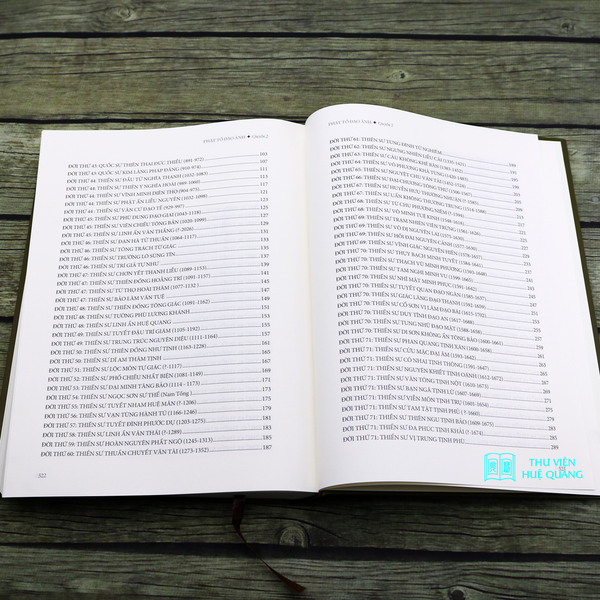 PHẬT TỔ ĐẠO ẢNH ● Quyển 2
ĐỜI THỨ 43: QUỐC SƯ THIÊN THAI ĐỨC THIỀU (891-972) 103
ĐỜI THỨ 43: QUỐC SƯ KIM LĂNG PHÁP ĐĂNG (910-974) 107
ĐỜI THỨ 44: THIỀN SƯ ĐẦU TỬ NGHĨA THANH (1032-1083) 111
ĐỜI THỨ 44: THIỀN SƯ THIÊN Y NGHĨA HOÀI (989-1060) 113
ĐỜI THỨ 44: THIỀN SƯ VĨNH MINH DIÊN THỌ (904-975) 115
ĐỜI THỨ 44: THIỀN SƯ PHẬT ẤN LIỄU NGUYÊN (1032-1098) 117
ĐỜI THỨ 44: THIỀN SƯ VÂN CƯ ĐẠO TỀ (929-997) 119
ĐỜI THỨ 45: THIỀN SƯ PHÙ DUNG ĐẠO GIAI (1043-1118) 121
ĐỜI THỨ 45: THIỀN SƯ VIÊN CHIẾU TÔNG BẢN (1020-1100) 125
ĐỜI THỨ 45: THIỀN SƯ LINH ẨN VĂN THẮNG (?-2026) 129
ĐỜI THỨ 46: THIỀN SƯ ĐAN HÀ TỬ THUẦN (1064-1117) 131
ĐỜI THỨ 46: THIỀN SƯ TÔNG TRÁCH TỪ GIÁC 133
ĐỜI THỨ 46: THIỀN SƯ TRƯỜNG LÔ SÙNG TÍN 135
ĐỜI THỨ 46: THIỀN SƯ TRÍ GIẢ TỰ NHƯ 137
ĐỜI THỨ 47: THIỀN SƯ CHƠN YẾT THANH LIỄU (1089-1153) 139
ĐỜI THỨ 47: THIỀN SƯ THIÊN ĐỒNG HOẰNG TRÍ (1091-1157) 141
ĐỜI THỨ 47: THIỀN SƯ TỪ THỌ HOÀI THÂM (1077-1132 ) 145
ĐỜI THỨ 47: THIỀN SƯ BẢO LÂM VĂN TUỆ 147
ĐỜI THỨ 48: THIỀN SƯ THIÊN ĐỒNG TÔNG GIÁC (1091-1162) 149
ĐỜI THỨ 48: THIỀN SƯ TƯƠNG PHÙ LƯƠNG KHÁNH 151
ĐỜI THỨ 48: THIỀN SƯ LINH ẨN HUỆ QUANG 153
ĐỜI THỨ 49: THIỀN SƯ TUYẾT ĐẬU TRÍ GIÁM (1105-1192) 155
ĐỜI THỨ 49: THIỀN SƯ TRUNG TRÚC NGUYÊN DIỆU (1111-1164) 157
ĐỜI THỨ 50: THIỀN SƯ THIÊN ĐỒNG NHƯ TỊNH (1163-1228) 161
ĐỜI THỨ 50: THIỀN SƯ DĨ AM THÂM TỊNH 163
ĐỜI THỨ 51: THIỀN SƯ LỘC MÔN TỰ GIÁC (?-1117) 165
ĐỜI THỨ 52: THIỀN SƯ PHỔ CHIẾU NHẤT BIỆN (1081-1149) 167
ĐỜI THỨ 53: THIỀN SƯ ĐẠI MINH TĂNG BẢO (1114 - 1173) 171
ĐỜI THỨ 54: THIỀN SƯ NGỌC SƠN SƯ THỂ (Nam Tống ) 173
ĐỜI THỨ 55: THIỀN SƯ TUYẾT NHAM HUỆ MÃN (?-1206) 175
ĐỜI THỨ 56: THIỀN SƯ VẠN TÙNG HÀNH TÚ (1166-1246) 177
ĐỜI THỨ 57: THIỀN SƯ TUYẾT ĐÌNH PHƯỚC DỤ (1203-1275) 179
ĐỜI THỨ 58: THIỀN SƯ LINH ẨN VĂN THÁI (?-1289) 183
ĐỜI THỨ 59: THIỀN SƯ HOÀN NGUYÊN PHẬT NGỘ (1245-1313) 185
ĐỜI THỨ 60: THIỀN SƯ THUẦN CHUYẾT VĂN TÀI (1273-1352) 187
522
PHẬT TỔ ĐẠO ẢNH ● Quyển 2
ĐỜI THỨ 61: THIỀN SƯ TÙNG ĐÌNH TỬ NGHIÊM 189
ĐỜI THỨ 62: THIỀN SƯ NGƯNG NHIÊN LIỄU CẢI (1335-1421)
ĐỜI THỨ 63: THIỀN SƯ CÂU KHÔNG KHẾ BẢN
ĐỜI THỨ 64: THIỀN SƯ VÔ PHƯƠNG KHẢ TÙNG
ĐỜI THỨ 65: THIỀN SƯ NGUYỆT CHU VĂN TẢI (1452-1524)
ĐỜI THỨ 66: THIỀN SƯ ĐẠI CHƯƠNG TÔNG THƯ (1500-1567)
ĐỜI THỨ 67: THIỀN SƯ
ĐỜI THỨ 67: THIỀN SƯ
ĐỜI THỨ 68: THIỀN SƯ TỪ CHU PHƯƠNG NIỆM
ĐỜI THỨ 68: THIỀN SƯ VÔ MINH TUỆ KINH (1548-1618)
ĐỜI THỨ 69: THIỀN SƯ TRẠM NHIÊN VIÊN TRỪNG (1561-1626)
ĐỜI THỨ 69: THIỀN SƯ VÔ DỊ NGUYÊN LAI (1575-1630)
ĐỜI THỨ 69: THIỀN SƯ HỐI ĐÀI NGUYÊN CẢNH (1577-1630)
ĐỜI THỨ 69: THIỀN SƯ VĨNH GIÁC NGUYÊN HIỀN (1578-1657)
ĐỜI THỨ 70: THIỀN SƯ THỤY BẠCH MINH TUYẾT (1584-1641)
ĐỜI THỨ 70: THIỀN SƯ THẠCH VŨ MINH PHƯƠNG (1593-1648)
ĐỜI THỨ 70: THIỀN SƯ TAM NGHI MINH VU 241
ĐỜI THỨ 70: THIỀN SƯ NHĨ MẬT MINH PHỤC (1591-1642)
ĐỜI THỨ 70: THIỀN SƯ TUYẾT QUAN ĐẠO NGÂN (1585-1637)
ĐỜI THỨ 70: THIỀN SƯ GIÁC LÃNG ĐẠO THẠNH (1592-1659) 251
ĐỜI THỨ 70: THIỀN SƯ CỔ SƠN VI LÂM ĐẠO BÁI (1615-1702)
ĐỜI THỨ 70: THIỀN SƯ DUY TĨNH ĐẠO AN (1617-1688)
ĐỜI THỨ 70: THIỀN SƯ TUNG NHŨ ĐẠO MẬT (1588-1658)
ĐỜI THỨ 70: THIỀN SƯ ĐƠN KHÔNG ẤN TÔNG BẢO (1600-1661) 263
ĐỜI THỨ 71: THIỀN SƯ PHẠN QUANG TỊNH XÁN (1600-1658) 265
ĐỜI THỨ 71: THIỀN SƯ CỬU MẶC ĐẠI ÂM (1593-1642)
ĐỜI THỨ 71: THIỀN SƯ CÔ NHAI TỊNH THÔNG (1591-1671) 267
ĐỜI THỨ 71: THIỀN SƯ NGUYÊN KHIẾT TỊNH OÁNH (1612-1672) 271
ĐỜI THỨ 71: THIỀN SƯ VÂN TÔNG TỊNH NỘT (1610-1673) 273
ĐỜI THỨ 71: THIỀN SƯ BẠN NGÃ TỊNH LỮ (?-1667) 277
ĐỜI THỨ 71: THIỀN SƯ VIÊN MÔN TỊNH TRỤ (1601-1654) 279
ĐỜI THỨ 71: THIỀN SƯ TAM TẬT TỊNH PHỦ (?-1660) 281
ĐỜI THỨ 71: THIỀN SƯ THIÊN NGU TỊNH BẢO (?-1675) 283
ĐỜI THỨ 71: THIỀN SƯ ĐA PHÚC TỊNH KHẢI (?-1674) 287
ĐỜI THỨ 71: THIỀN SƯ VỊ TRUNG TỊNH PHÙ 289
THƯ VIỆN
HUỆ QUANG